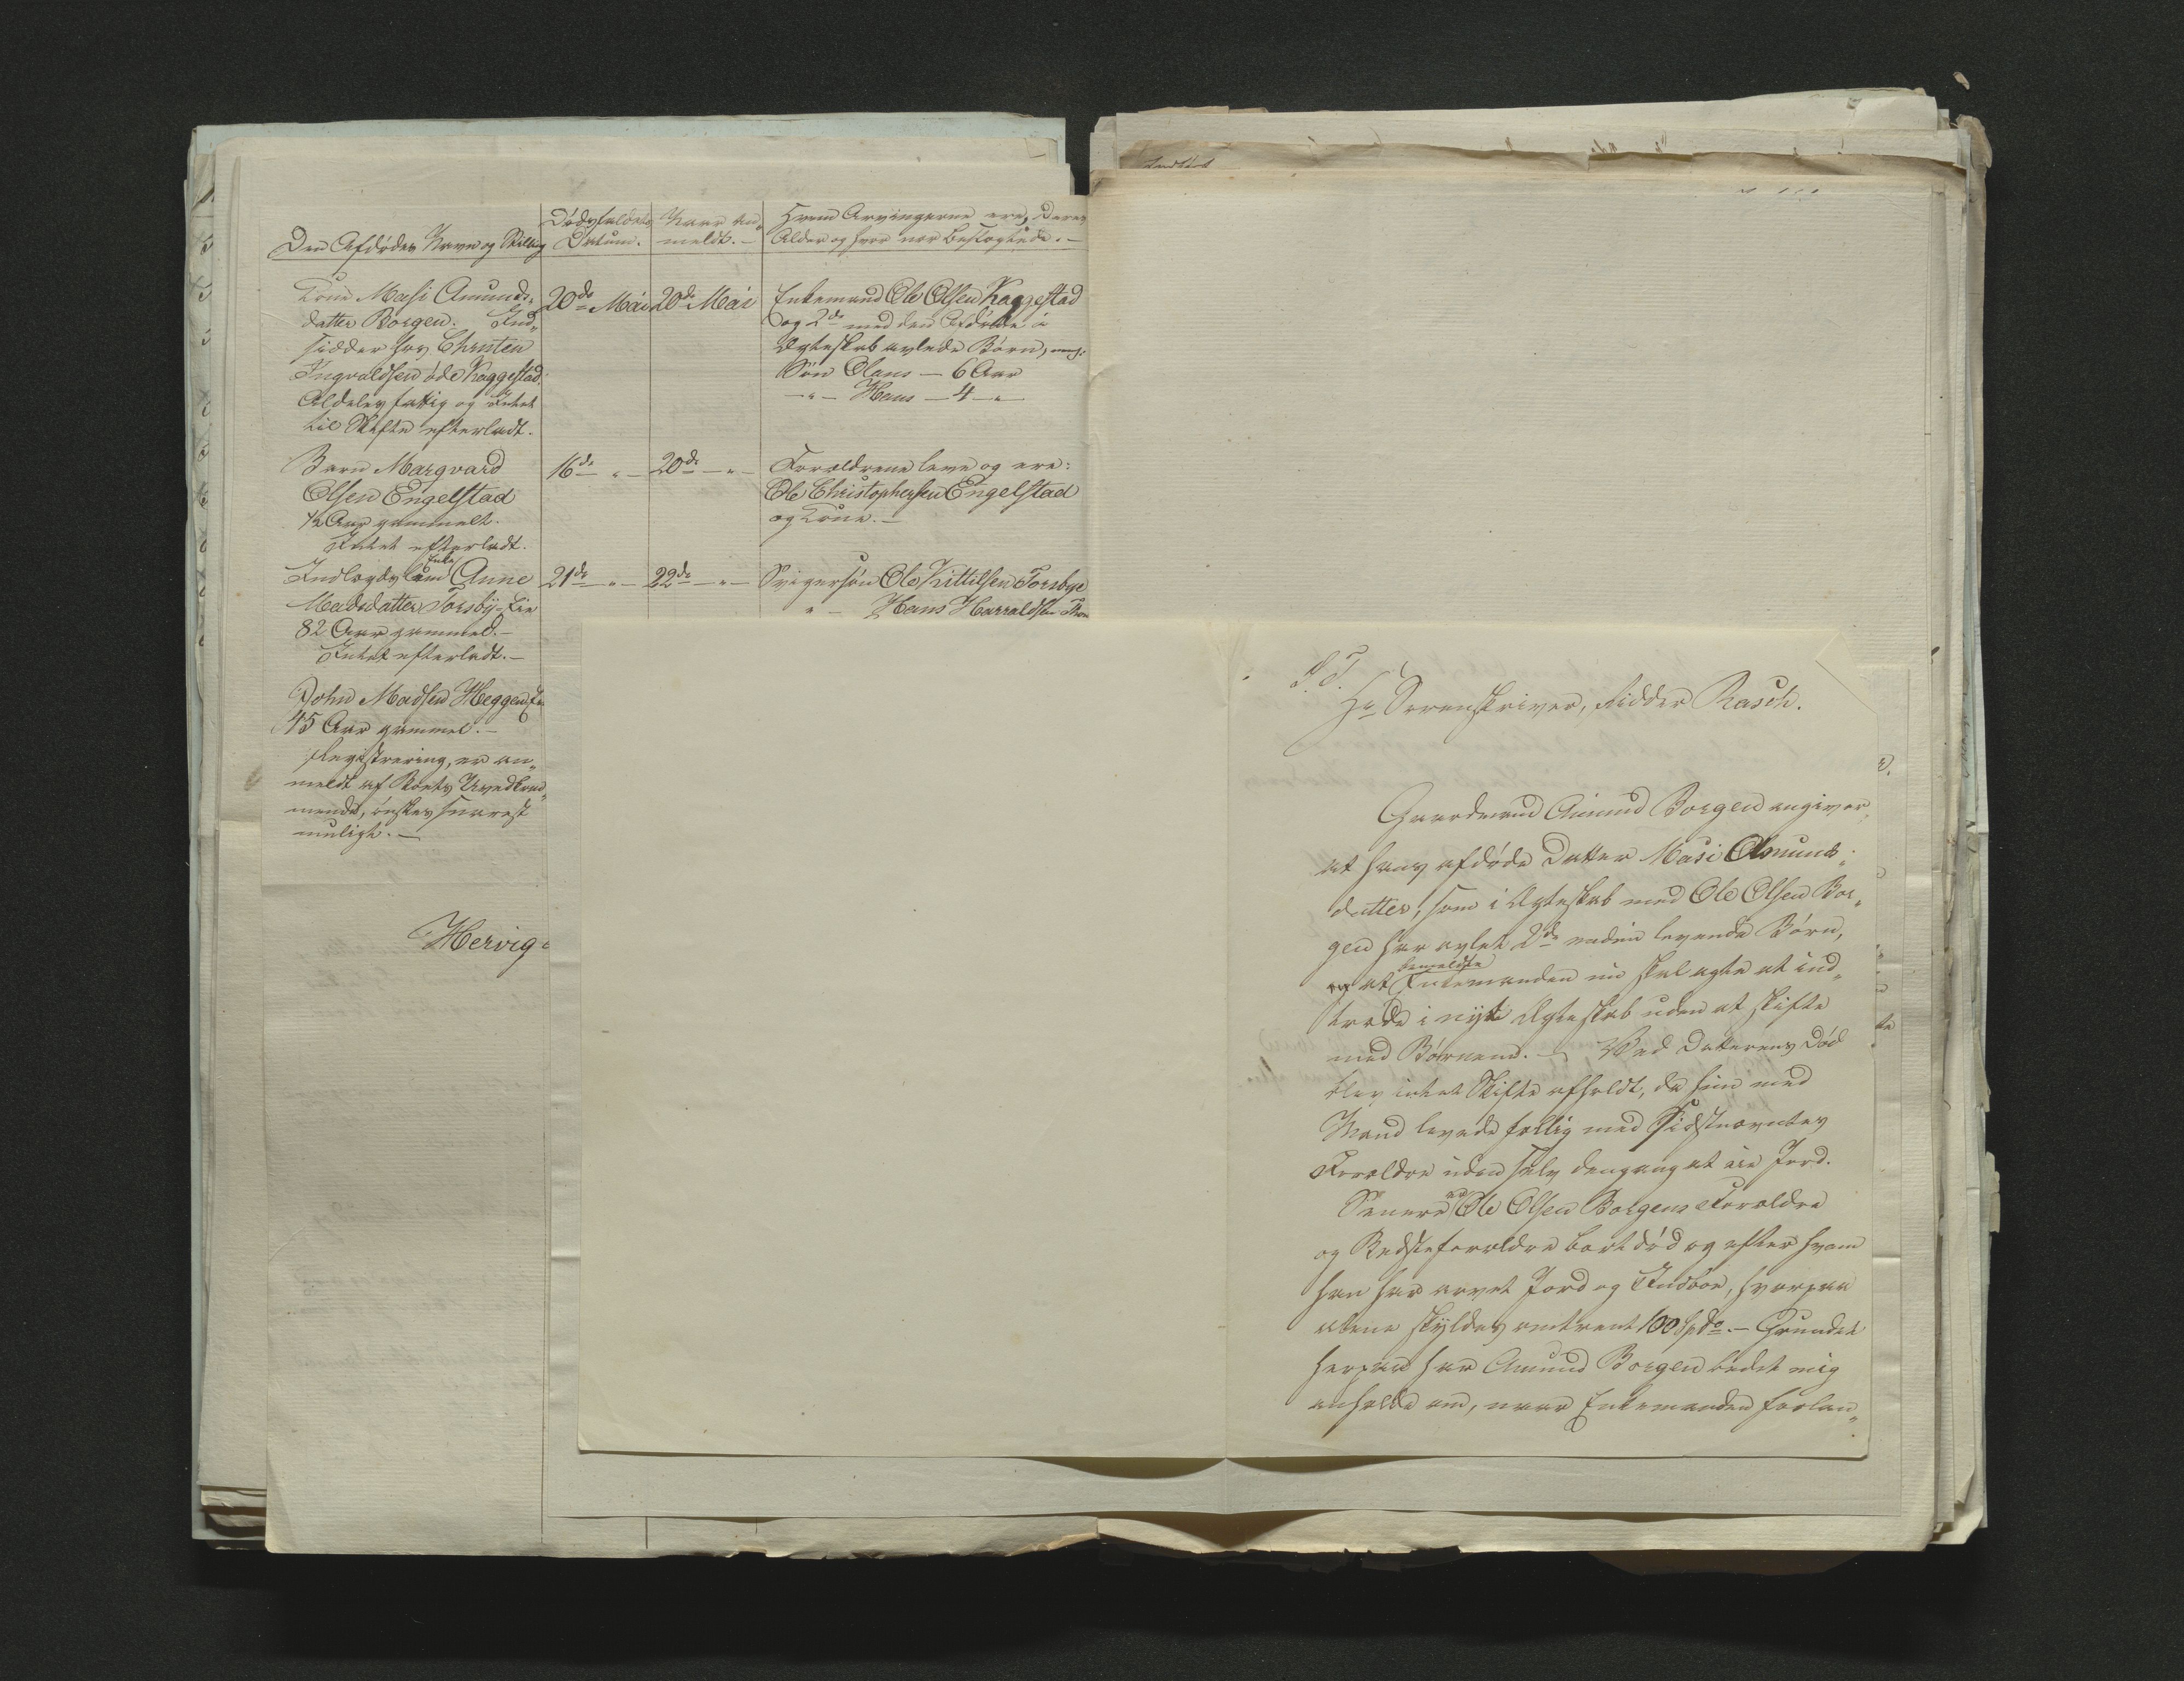 Den Afdødes Navn og Stilling
Dødsfaldets
Datum.
Naar an-
meldt. -
Hvem Arvingerne ere, deres
Alder og hvor nær beslægtede. -
Kone Masi Amunds-
datter Borgen. Ind-
sidder hos Christen
Ingvaldsen øde Kaggestad.
Aldeles fattig og Intet
til Skifte efterladt.
20de Mai
20de Mai
Enkemand Ole Olsen Kaggestad
og 2de med den Afdøde i
Ægteskab avlede Børn,
Søn Olaus - 6 Aar
- " - Hans - 4 - " -
Barn Margvard
Olsen Engelstad
1/2 Aar gammelt.
Intet efterladt.
16de - " -
20de - " -
Forældrene leve og ere:
Ole Christophersen Engelstad
og Kone. -
Enke
Anne
Madsdatter Torsby-Eie
82 Aar gammel. -
Intet efterladt. -
21de - " -
22de - " -
Svigersøn Ole Kittilsen Torsbye
" - Hans Harraldsen
John Madsen Heggen
45 Aar gammel. -
Registrering, er an-
meldt af Boets Vedkom-
mende, ønskes snarest
muligt. -
Hervig
S. T.
Hr Sorenskriver, Ridder Rasch.
Gaardmand Amund Borgen angiver,
at hans afdøde Datter Masi Amunds-
datter, som i Ægteskab med Ole Olsen Bor-
gen har avlet 2de endnu levende Børn,
bemeldte
og at Enkemanden nu skal agte at ind-
træde i nyt Ægteskab uden at skifte
med Børnene. - Ved Datterens Død
blev intet Skifte afholdt, da hun med
Mand levede fattig med Sidstnævntes
Forældre uden selv dengang at eie Jord.
Senere er Ole Olsen Borgens Forældre
og Bedsteforældre bortdød og efter hvem
han har arvet Jord og Indboe, hvorpaa
alene skyldes omtrent 100 Spd. - Grundet
herpaa har Amund Borgen bedet mig
anholde om, naar Enkemanden forlan-